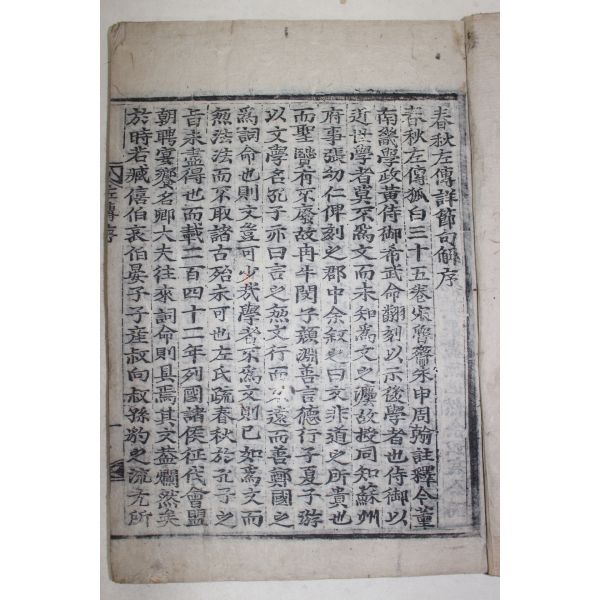 春秋左傳詳節句解序
春秋左傳狐白三十五卷宋魯齋朱申周翰註釋今董
南畿學政黃侍御希武命翻刻以示後學者也侍御以
近世學者莫不爲文而未知爲文之灋故授同知蘇州
府事張幼仁俾刻之郡中余叙之曰文非道之所貴也
而聖賢有不廢故冉牛閔子顏淵善言德行子夏子游
以文學名孔子亦曰言之無文行而不遠而善鄭國之
爲詞命也則文豈可少哉學者不爲文則已如爲文而
無法法而不取諸古殆未可也左氏疏春秋於孔子之
旨未盡得也而載二百四十二年列國諸侯征伐會盟
朝聘宴饗名卿大夫徃來詞命則具焉其文蓋爛然矣
於時若臧僖伯哀伯晏子子產叔向叔孫豹之流尤所
左傳序
一